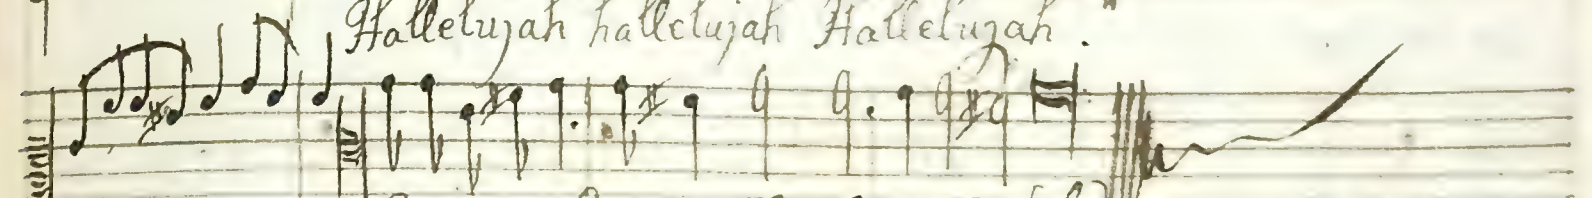 Hallelujah hallelujah Hallelujah.